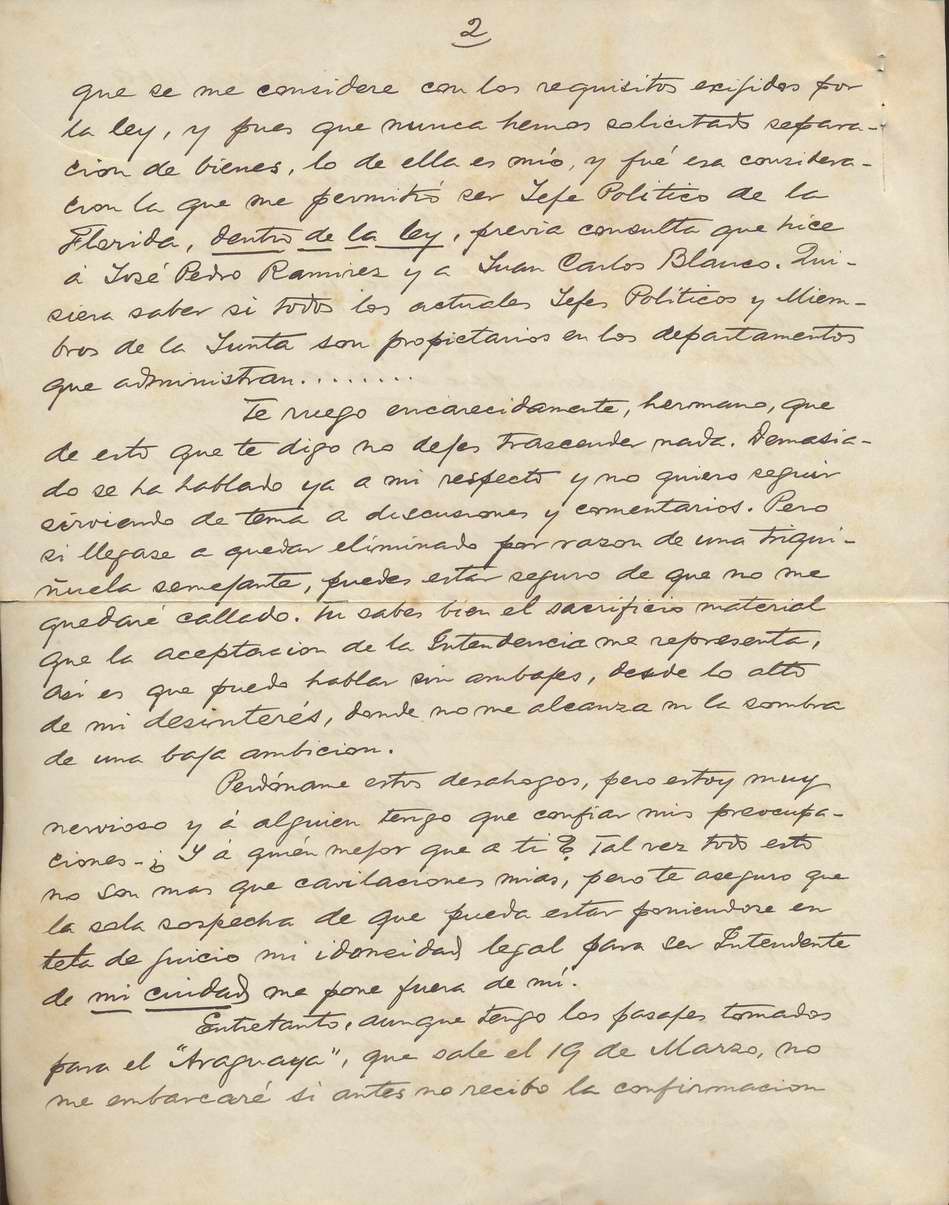 2
que se me considere con los requisitos exijidos por
la ley, y pues que nunca hemos solicitado separa-
cion de bienes, lo de ella es mío, y fué esa considera-
cion la que me permitió ser Jefe Politico de la
Florida, dentro de la ley, previa consulta que hice
á José Pedro Ramirez y a Juan Carlos Blanco. Qui-
siera saber si todos los actuales Jefes Politicos y Miem-
bros de la Junta son propietarios en los departamentos
que administran........
Te ruego encarecidamente, hermano, que
de esto que te digo no dejes trascender nada. Demasia-
do se ha hablado ya a mi respecto y no quiero seguir
sirviendo de tema a discusiones y comentarios. Pero
si llegase a quedar eliminado por razon de una triqui-
ñuela semejante, puedes estar seguro de que no me
quedaré callado. Tu sabes bien el sacrificio material
que la aceptacion de la Intendencia me representa,
asi es que puedo hablar sin ambajes, desde lo alto
de mi desinterés, donde no me alcanza ni la sombra
de una baja ambicion.
Perdóname estos desahogos, pero estoy muy
nervioso y á alguien tengo que confiar mis preocupa-
ciones-¿Y á quién mejor que a ti? Tal vez todo esto
no son mas que cavilaciones mias, pero te aseguro que
la sola sospecha de que pueda estar poniendose en
tela de juicio mi idoneidad legal para ser Intendente
de mi ciudad, me pone fuera de mí.
Entretanto, aunque tengo los pasajes tomados
para el "Araguaya", que sale el 19 de Marzo, no
me embarcaré si antes no recibo la confirmacion